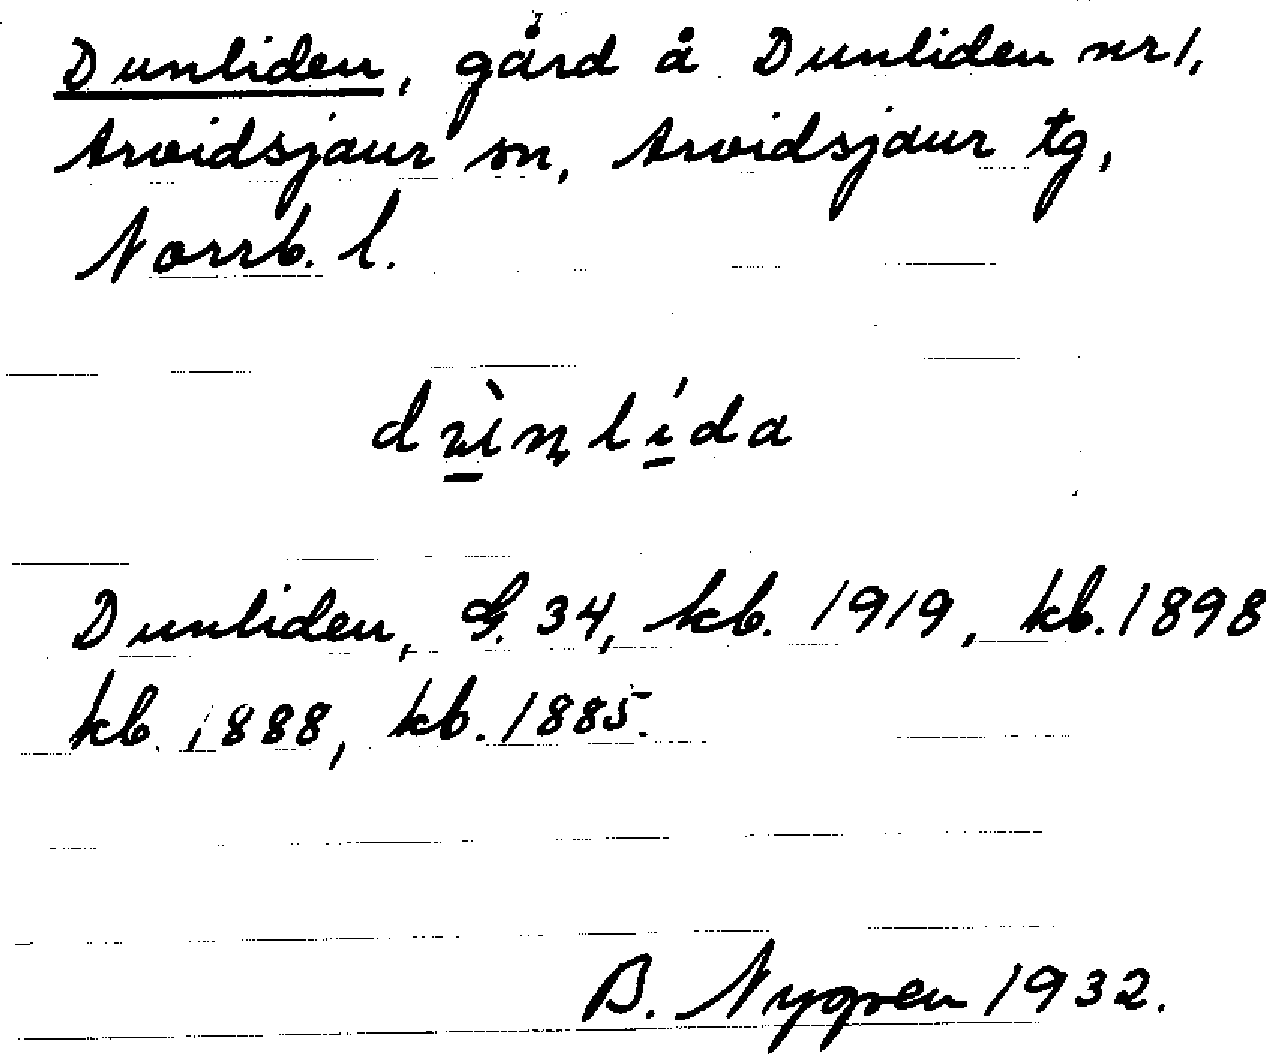 Dunliden, gård å Dunliden nr 1,
Arvidsjaur sn, Arvidsjaur tg,
Norrb. l.
dùnlída
Dunliden, G. 34, kb. 1919, kb. 1898
kb. 1888, kb. 1885.
B. Nygren 1932.